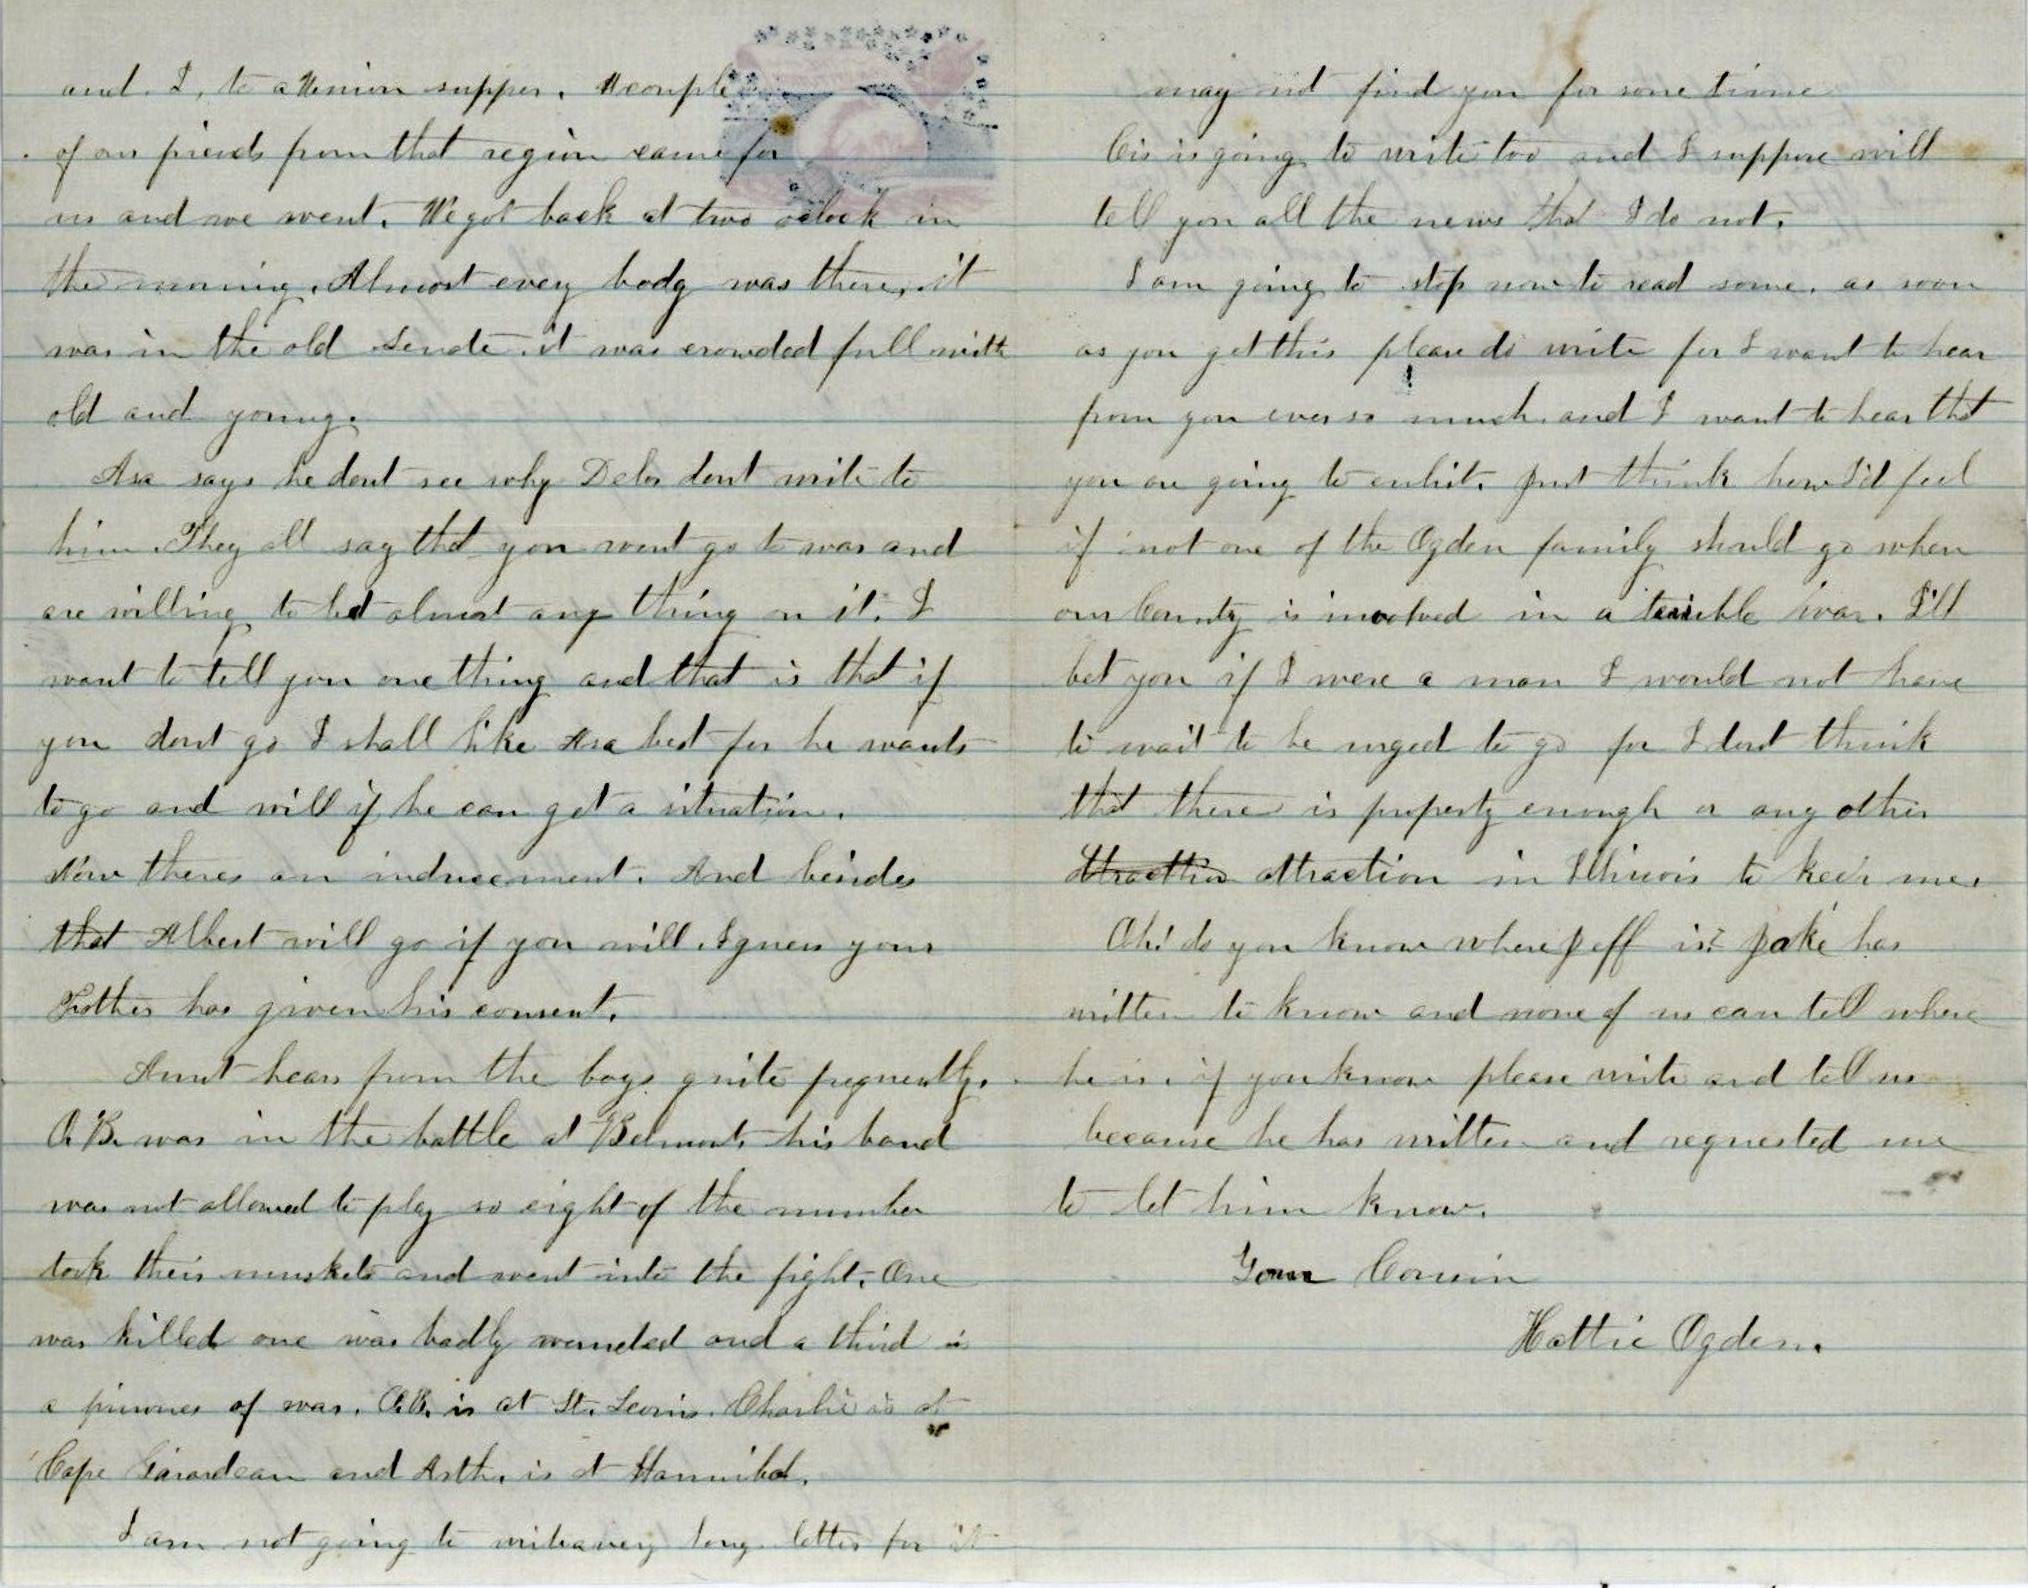 and I, to a Union supper. A couple
of our friends from that region came for
us and we went. We got back at two oclock in
the morning. Almost every body was there, it
was in the old it was crowded full with
old and young.
Asa says he dont see why Delos dont write to
him. They all say that you wont go to war and
are willing to bet almost any thing on it. I
want to tell you one thing and that is that if
you dont go I shall like Asa best for he wants
to go and will if he can get a situation.
Now theres an inducement. And besides
that Albert will go if you will. I guess your
Father has given his consent.
Aunt hears from the boys quite frequently.
O.B. was in the battle at Belmont, his band
was not allowed to play so eight of the number
took their muskets and went into the fight. One
was killed one was badly wounded and a third is
a prisoner of war. O.B. is at St. Louis. Charlie is at
Cape Girardeau and Arth. is at Hannibal.
I am not going to write a very long letter for it
may not find you for some time
Cis is going to write too and I suppose will
tell you all the news that I do not.
I am going to stop now to read some. as soon
as you get this please do write for I want to hear
from you ever so much and I want to hear that
you are going to enlist. Just think how I'd feel
if not one of the Ogden family should go when
our Country is involved in a terrible war. I'll
bet you if I were a man I would not have
to wait to be urged to go for I dont think
that there is property enough or any other
attraction in Illinois to keep me.
Oh! do you know where Jeff is? Jake has
written to know and none of us can tell where
he is. if you know please write and tell us
because he has written and requested me
to let him know.
Your Cousin
Hattie Ogden.